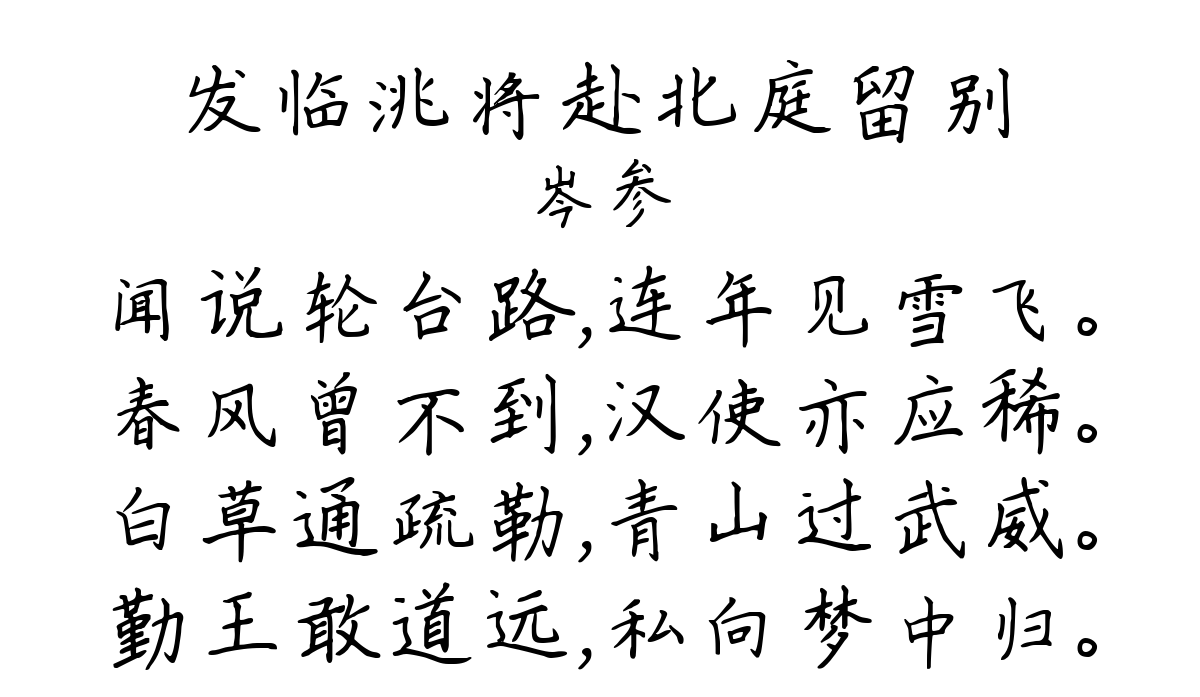 发临洮将赴北庭留别
岑参
闻说轮台路,连年见雪飞。
春风曾不到,汉使亦应稀。
白草通疏勒,青山过武威。
勤王敢道远,私向梦中归。